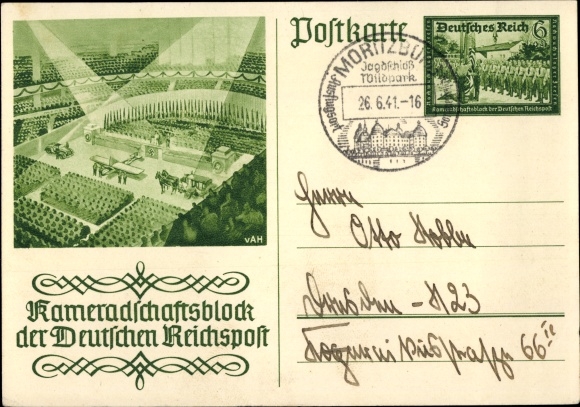 Postkarte
Deutsches Reich 6
Kameradschaftsblock der Deutschen Reichspost
MORITZBURG
Jagdschloß
Wildpark
26.6.41.-16
vAH
Kameradschaftsblock
der Deutschen Reichspost
Herrn
Otto
Dresden - N 23
66 II